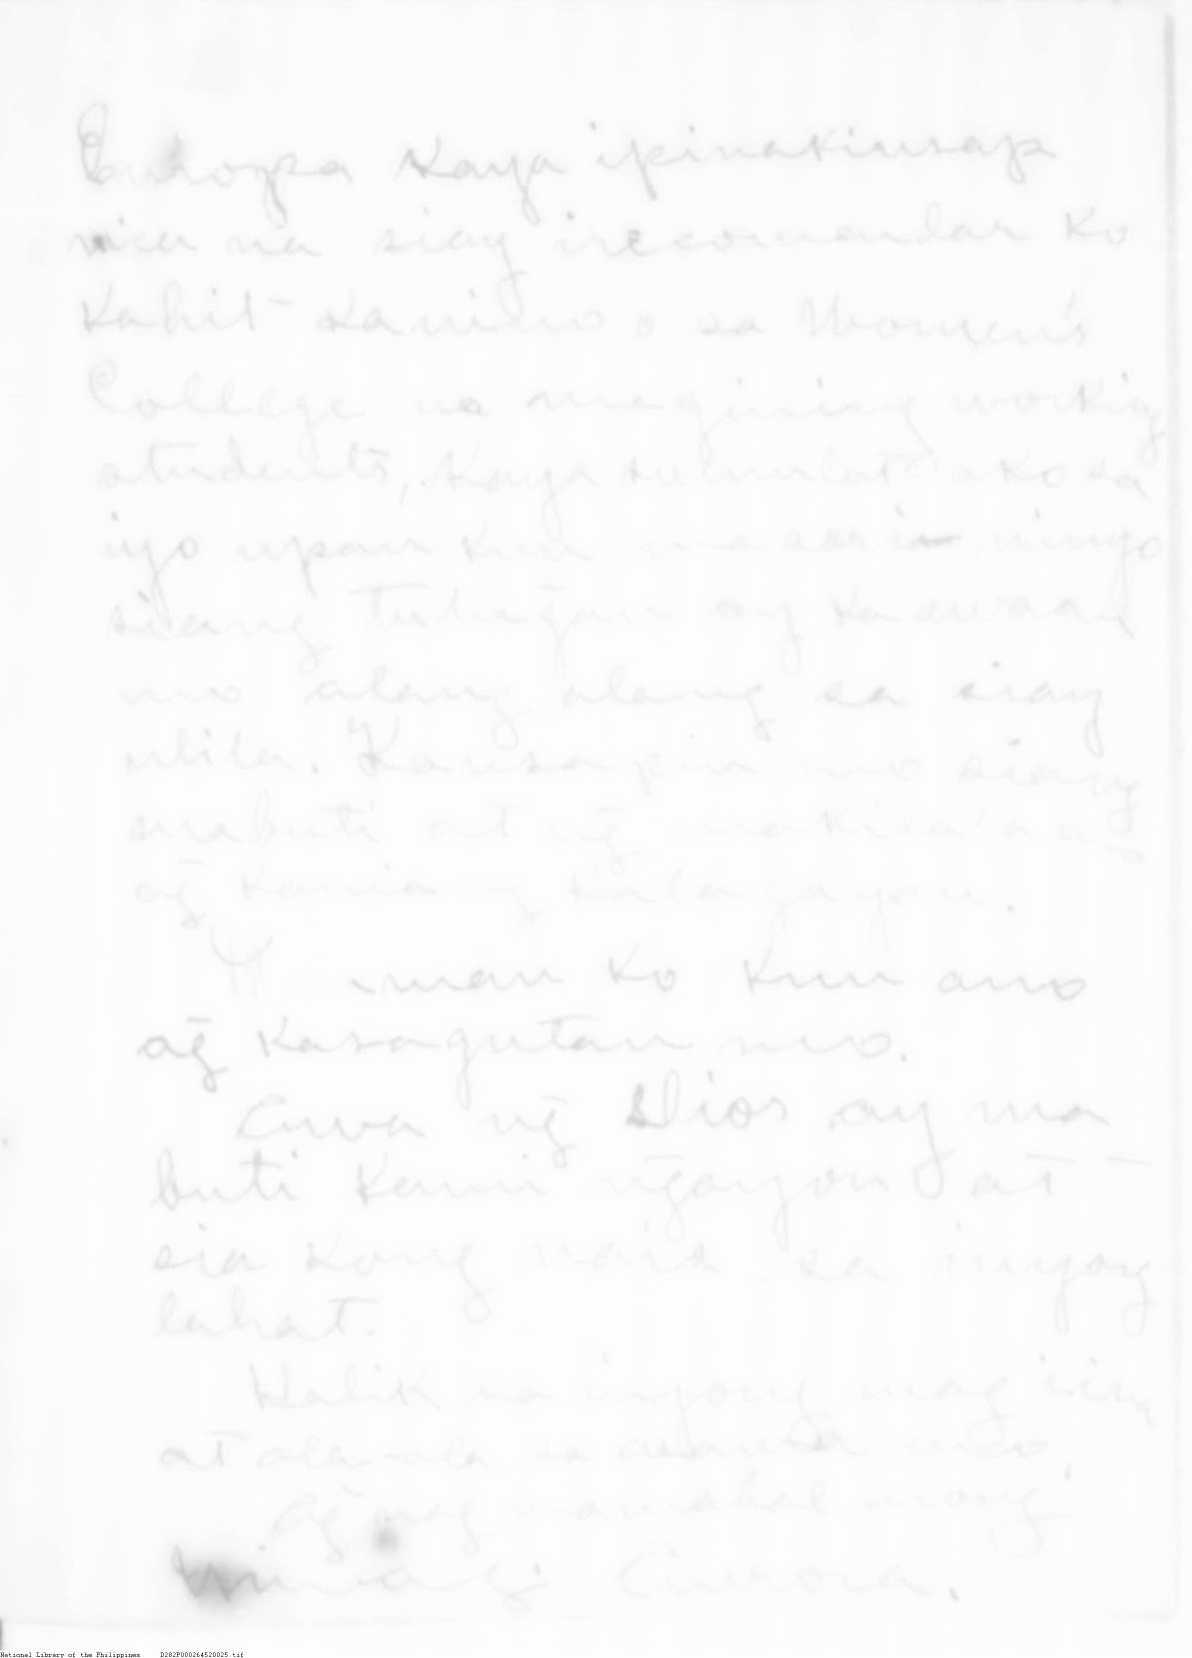 Europa Kaya ipinakiusap
nia na siay irecomendar ko
Kahit kanino o sa Women's
College na magising working
students, Kaya sumulat ako sa
iyo upan kun maaari ninyo
siang tulugan ay kaawaan
mo alang alang sa siay
ulila. Kausapin mo siang
mabuti at
ag kaniang kalagayan.
iman ko kun ano
ag kasagutan mo.
Awa ng Dios ay ma
buti kami ngayon at
sia kong nais sa inyong
lahat.
Halik sa inyong mag
at ala-ala sa asawa mo,
Ag nag mamahal mong
Aurora.
National Library of the Philippines D282P000264520025.tif